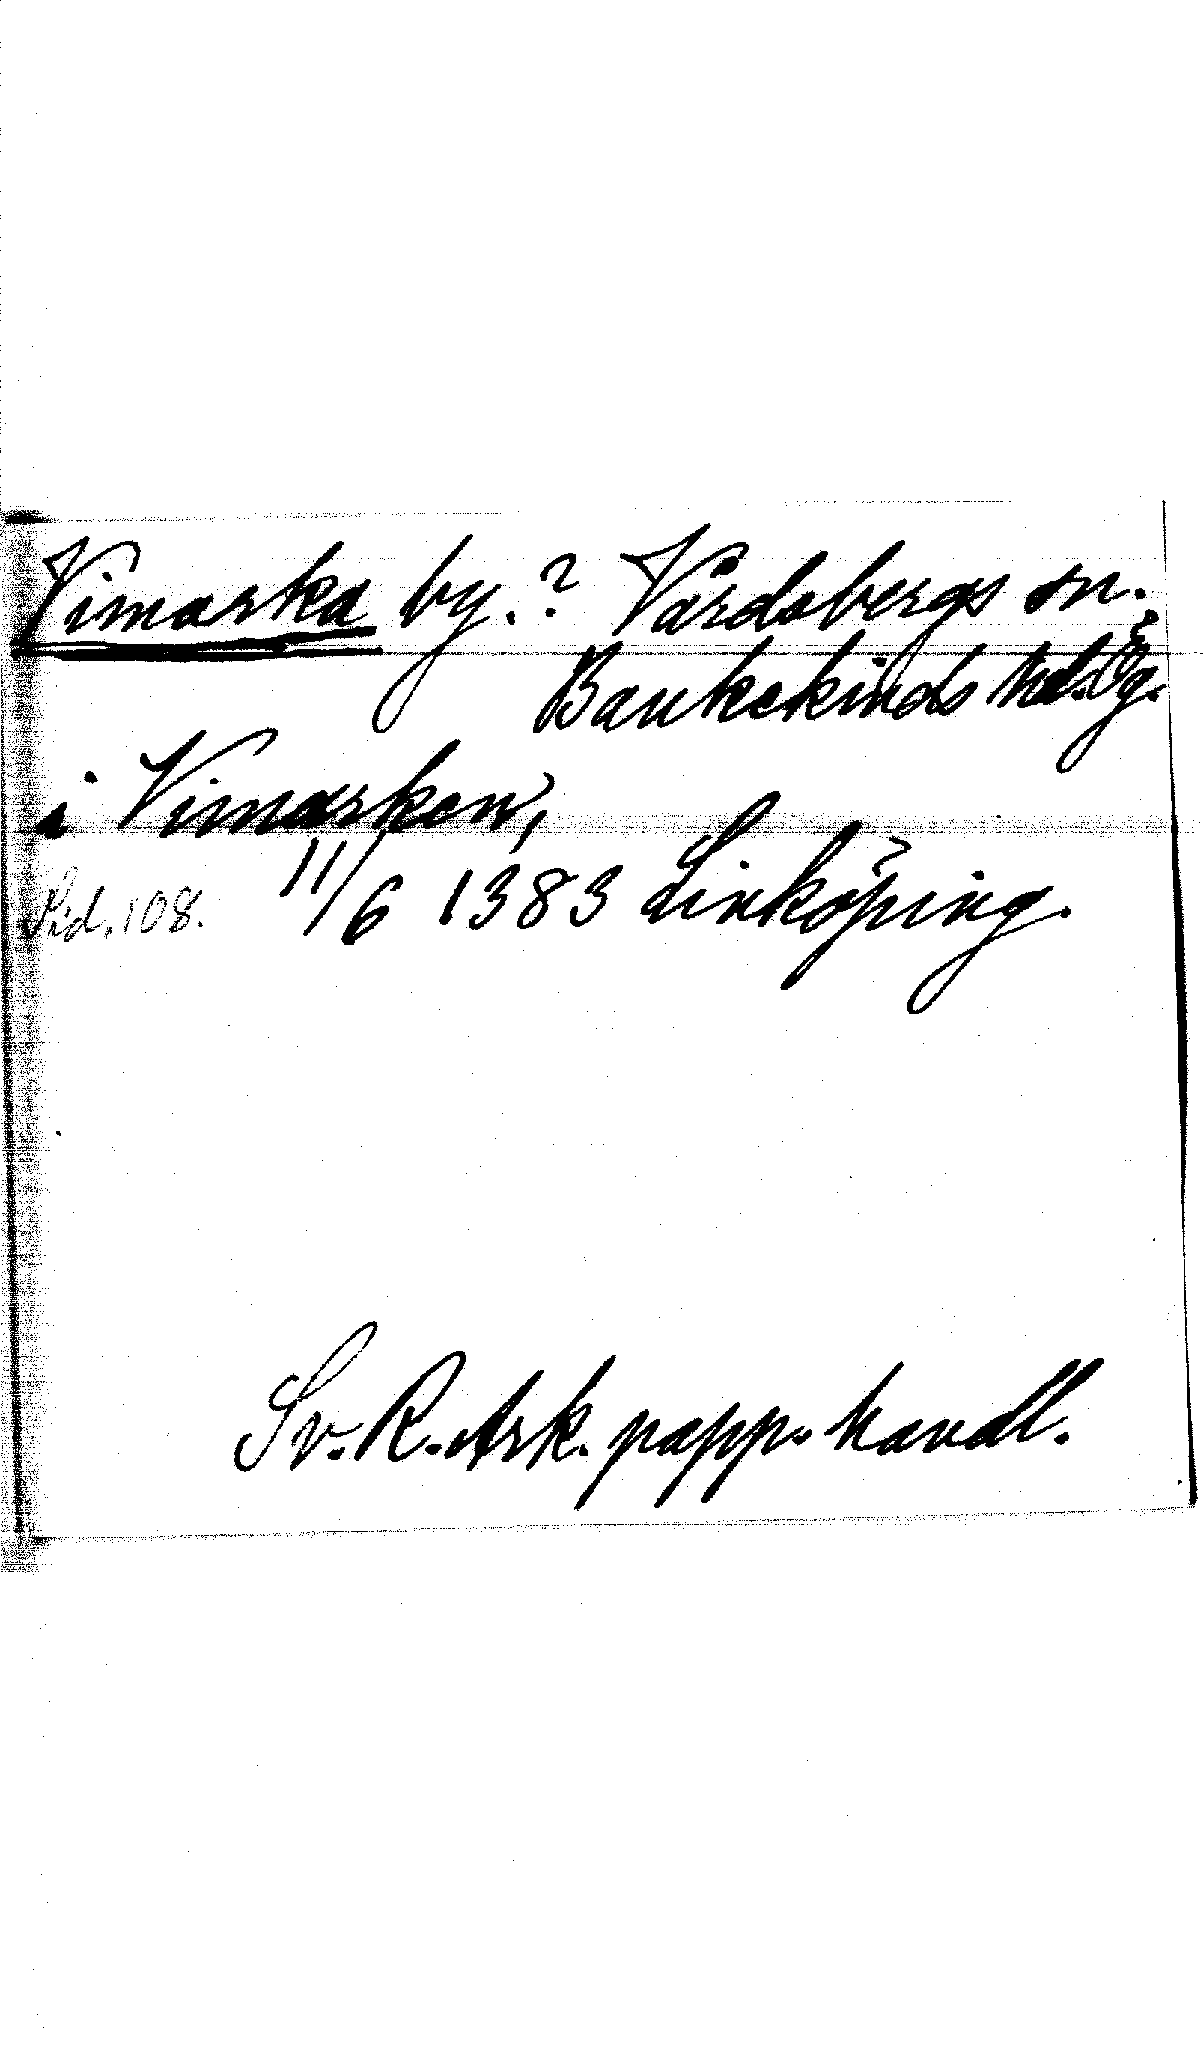 Vimarka by.? Vårdsbergs sn.
Bankekinds hd. Ög.
i Vimarken,
Sid. 108. 11/6 1383 Linköping.
Sv. R. Ark. papp. handl.